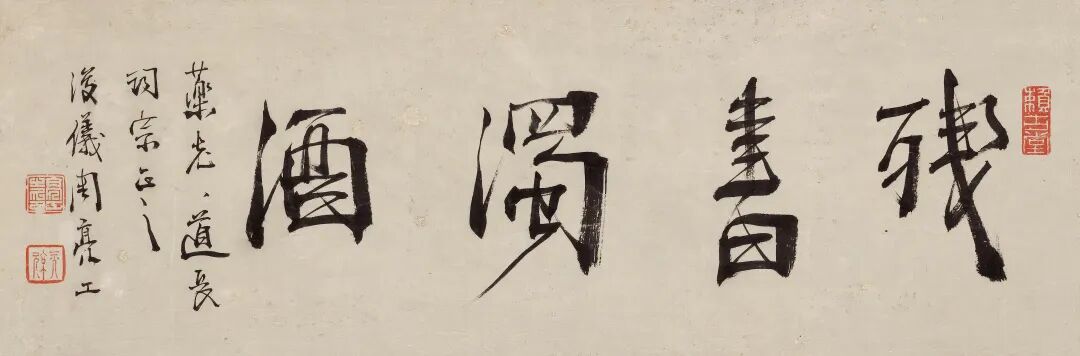 賴古堂
殘書濁酒
藥老、道長
詞宗正之
浚儀周亮工